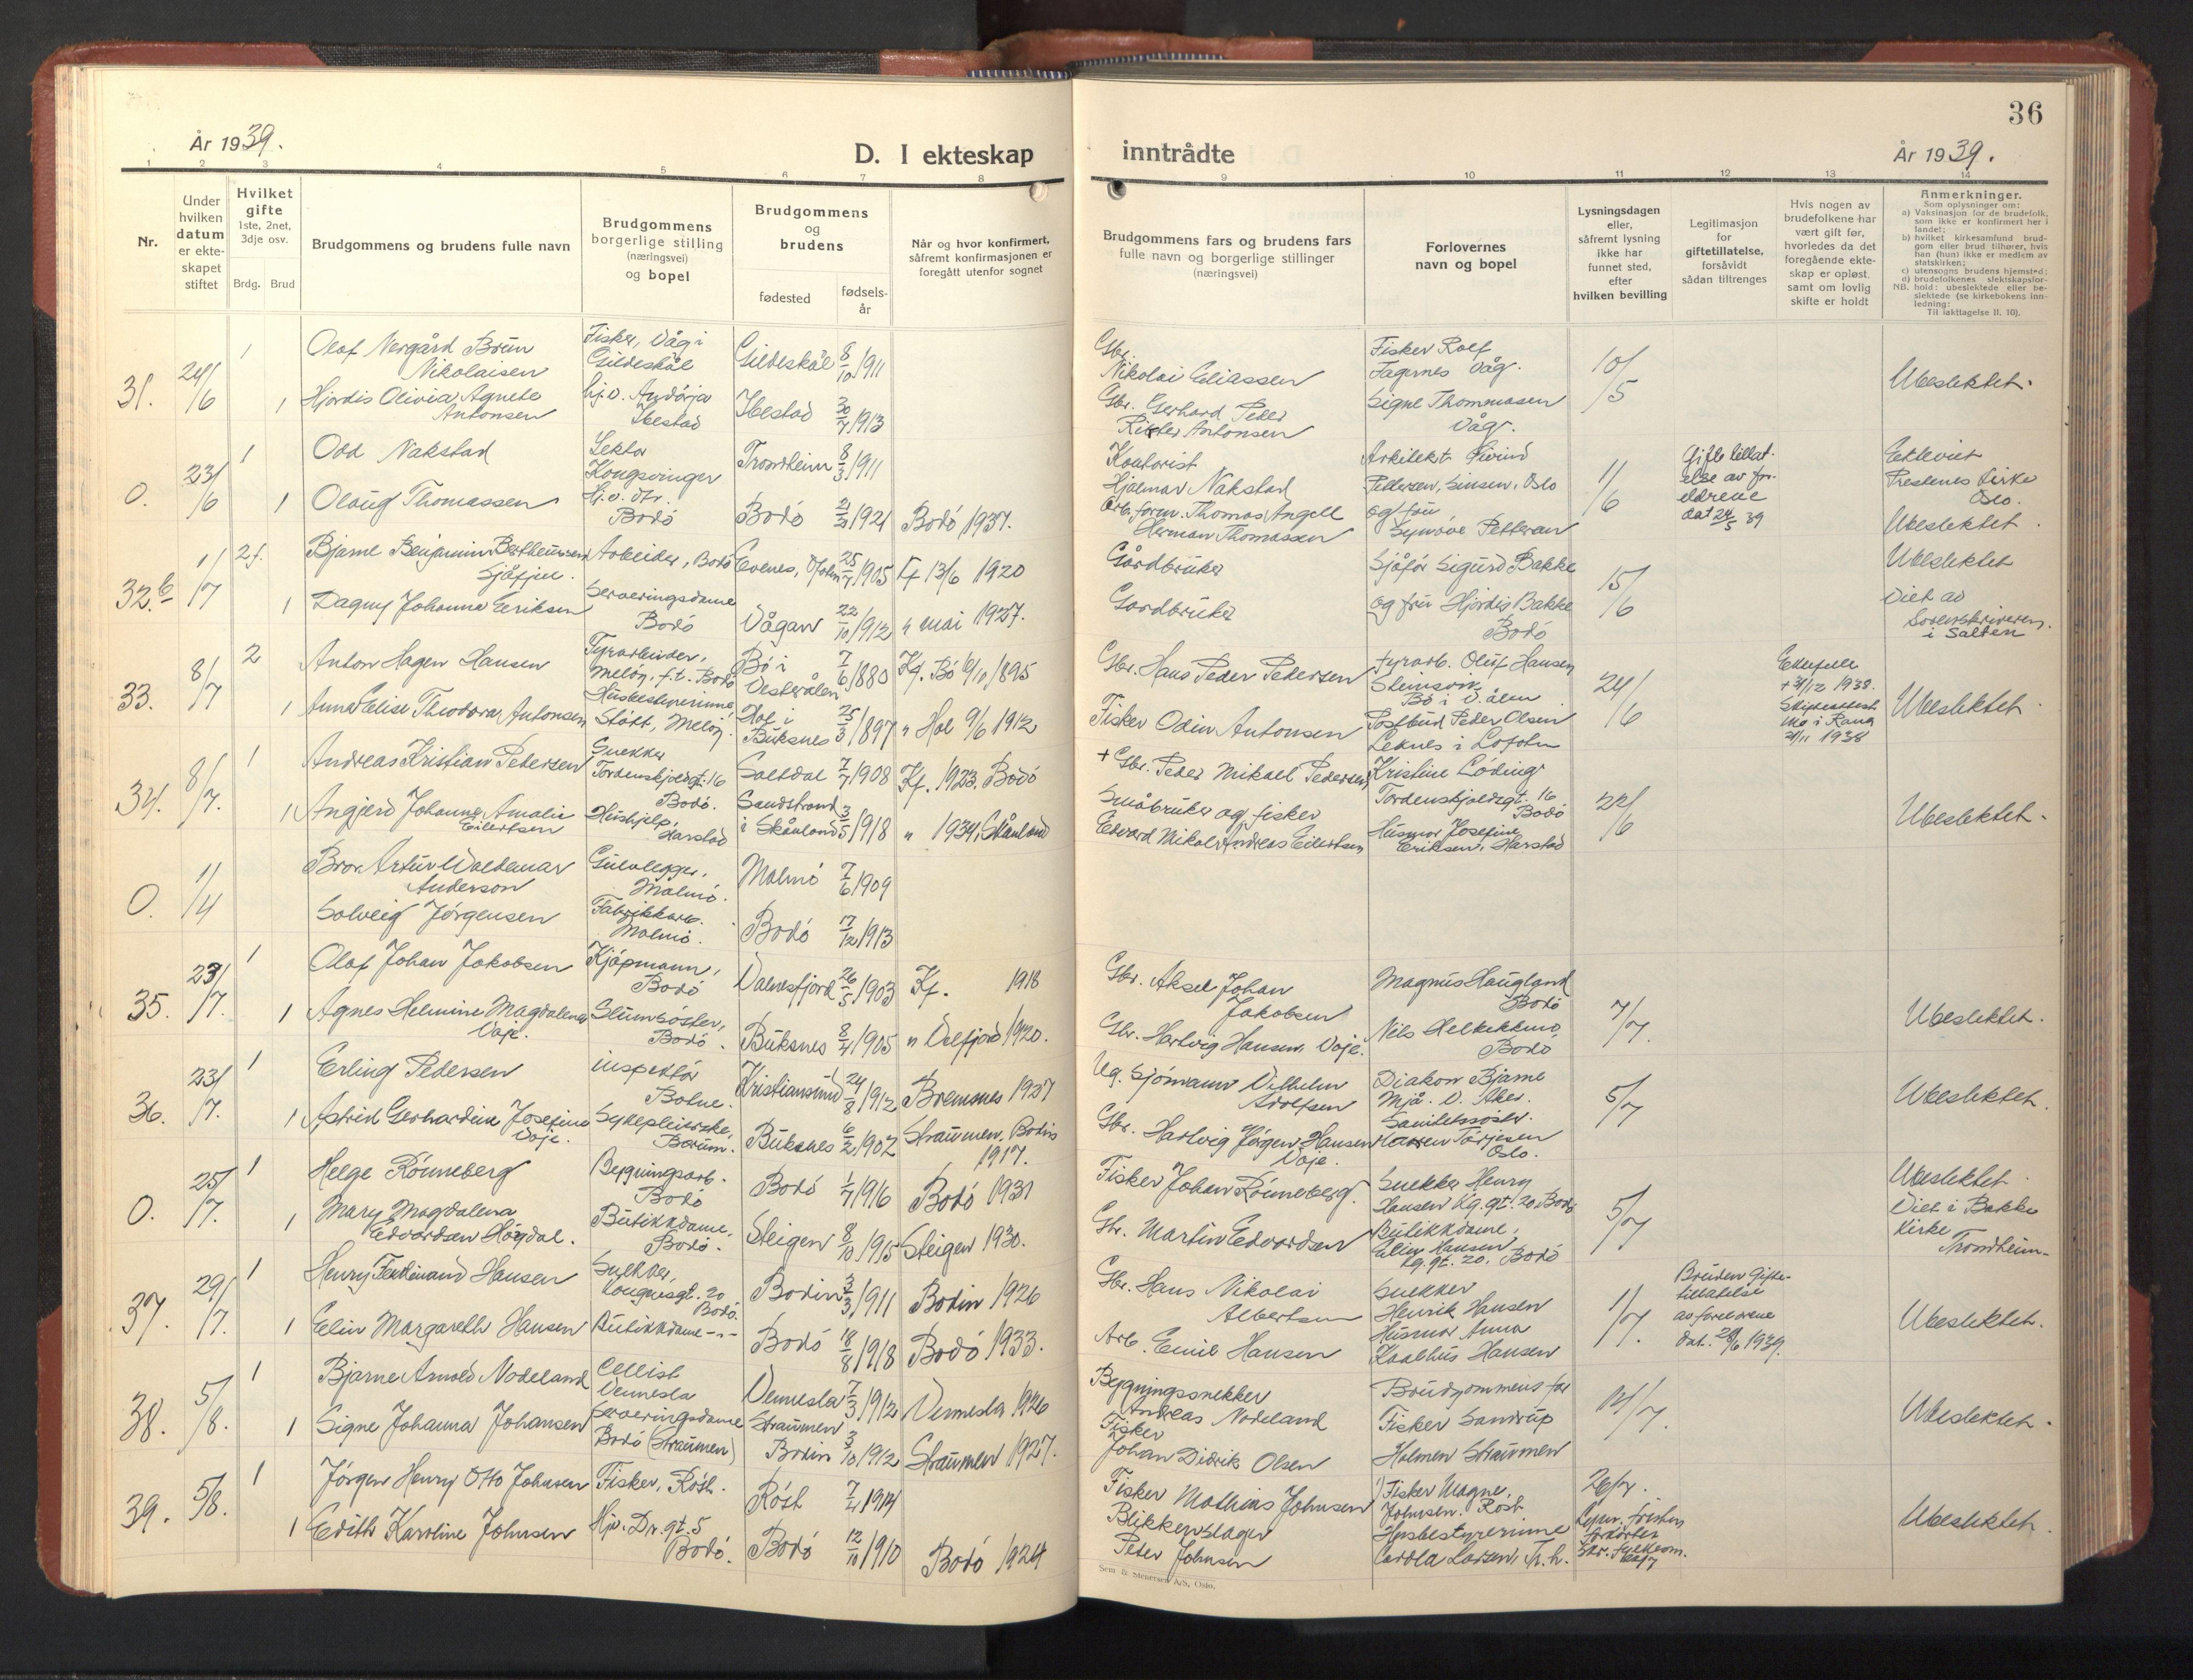 36
År 1939.
D. I ekteskap
inntrådte
År 1939.
1 2 3 4 5 6 7 8 9 10 11 12 13 14
Nr.
Under
hvilken
datum
er ekte-
skapet
stiftet
Hvilket
gifte
1ste, 2net,
3dje osv.
Brdg. Brud
Brudgommens og brudens fulle navn
Brudgommens
borgerlige stilling
(næringsvei)
og bopel
Brudgommens
og
brudens
fødested
fødsels-
år
Når og hvor konfirmert,
såfremt konfirmasjonen er
foregått utenfor sognet
Brudgommens fars og brudens fars
fulle navn og borgerlige stillinger
(næringsvei)
Forlovernes
navn og bopel
Lysningsdagen
eller,
såfremt lysning
ikke har
funnet sted,
efter
hvilken bevilling
Legitimasjon
for
giftetillatelse,
forsåvidt
sådan tiltrenges
Hvis nogen av
brudefolkene har
vært gift før,
hvorledes da det
foregående ekte-
skap er opløst,
samt om lovlig
skifte er holdt
Anmerkninger.
Som oplysninger om:
a) Vaksinasjon for de brudefolk,
som ikke er konfirmert her i
landet;
b) hvilket kirkesamfund brud-
gom eller brud tilhører, hvis
han (hun) ikke er medlem av
statskirken;
c) utensogns brudens hjemsted;
d) brudefolkenes slektskapsfor-
NB. hold: ubeslektede eller be-
slektede (se kirkebokens inn-
ledning:
Til iakttagelse II. 10).
31. 24/6 1
Olaf Nergård Brun
Nikolaisen
Fisker, Våg i
Gildeskål
Gildeskål 8/10 1911
Gbr.
Nikolai Eliassen
Fisker Rolf
Fagernes Våg.
10/5
Ubeslektet.
1 Hjordis Olivia Agnete
Antonsen
Hj.v. Andørja
Ibestad
Ibestad 30/7 1913
Gbr. Gerhard Peder
Rikter Antonsen
Signe Thommasen
Våg.
0. 23/6 1
Odd Nakstad
Lektor
Kongsvinger
Trondheim 8/3 1911
Kontorist
Hjalmar Nakstad
Arkitekt Eivind
Pettersen, Sinsen, Oslo
og fru
Synnøve Pettersen
11/6
Gifte tillat-
else av for-
eldrene
dat 24/5 39
Ekteviet
Prestenes Kirke
Oslo.
Ubeslektet.
1 Olaug Thomassen
Hj.v. dtr.
Bodø
Bodø 21/3 1921 Bodø 1937.
Arb. form. Thomas Angell
Herman Thomassen
32.b 1/7 2f.
Bjarne Benjamin Bertheussen
Sjåfjell.
Arbeider, Bodø
Evenes, Ofoten 25/7 1905 Kf 13/6 1920
Gårdbruker
Sjåfør Sigurd Bakke
og fru Hjordis Bakke
Bodø
15/6
Ubeslektet
Viet av
Sorenskriveren
i Salten
1 Dagny Johanna Eriksen
Serveringsdame
Bodø
Vågan 22/10 1912 " mai 1927.
Gardbruker
33. 8/7 2
Anton Hagen Hansen
Fyrarbeider,
Meløy, f.t. Bodø
Bø i
Vesterålen 7/6 1880 Kf. Bø 6/10 1895
Gbr. Hans Peder Pedersen
Fyrarb. Oluf Hansen
Steinsvik
Bø i V.ålen
24/6
Ektefelle
+ 31/12 1938.
Skifteattest
Mo i Rana
21/11 1938
Ubeslektet.
1 Anna Elise Theodora Antonsen
Husbestyrerinne,
Støtt, Meløy.
Hol i
Buksnes 25/3 1897 " Hol 9/6 1912
Fisker Odin Antonsen
Postbud Peder Olsen
Leknes i Lofoten
34. 8/7. 1
Andreas Kristian Pedersen
Snekker
Tordenskjoldgt. 16
Bodø.
Saltdal 7/7 1908 Kf. 1923. Bodø
+ Gbr. Peder Mikael Pedersen
Kristine Løding
Tordenskjoldsgt. 16
Bodø
22/6
Ubeslektet.
1 Angjerd Johanne Amalie
Eilertsen
Hushjelp,
Harstad
Sandstrand
i Skånland 3/5 1918 " 1934, Skånland
Småbruker og fisker
Edvard Mikal Andreas Eilertsen
Husmor Josefine
Eriksen, Harstad
0. 1/4
Bror Artur Waldemar
Anderson
Gulvlegger,
Malmø.
Malmø 7/6 1909
Solveig Jørgensen
Fabrikkarb.
Malmø.
Bodø 17/12 1913
35. 23/7. 1
Olaf Johan Jakobsen
Kjøpmann,
Bodø
Valnesfjord 26/5 1903 Kf. 1918
Gbr. Aksel Johan
Jakobsen
Magnus Haugland
Bodø
7/7.
Ubeslektet.
1 Agnes Helmine Magdalena
Voje.
Slumsøster,
Bodø.
Buksnes 8/4 1905 " Velfjord 1920.
Gbr. Hartvig Hansen Voje.
Nils Helkekkmo,
Bodø
36. 23/7. 1
Erling Pedersen
inspektør
Botne.
Kristiansund 24/8 1912 Bremsnes 1927
Ug. Sjømann Vilhelm
Adolfsen
Diakon Bjarne
Mjå. V. Aker.
5/7
Ubeslektet.
1 Astrid Gerhardine Josefine
Voje.
Sykepleierske,
Bærum.
Buksnes 6/2 1902 Straumen, Bodin
1917.
Gbr. Hartvig Jørgen Hansen
Voje.
Sanitetssøster
Karen Tørjesen
Oslo.
0. 25/7. 1
Helge Rønneberg
Bygningsarb.
Bodø
Bodø 1/7 1916 Bodø 1931
Fisker Johan Rønneberg.
Snekker Henry
Hansen Kg.gt. 20, Bodø
5/7
Ubeslektet.
Viet i Bakke
Kirke
Trondheim
1 Mary Magdalena
Edvardsen Høgdal.
Butikkdame,
Bodø.
Steigen 8/10 1915 Steigen 1930.
Gbr. Martin Edvardsen
Butikkdame,
Elin Hansen,
Kg.gt. 20, Bodø
37. 29/7. 1
Henry Ferdinand Hansen
Snekker,
Kongensgt. 20
Bodø.
Bodin 3/3 1911 Bodin 1926
Gbr. Hans Nikolai
Albertsen
Snekker
Henrik Hansen
1/7.
Bruden Gifte-
tillatelse
av foreldrene
dat. 28/6 1939.
Ubeslektet.
1 Elin Margareth Hansen
Butikkdame -"-
Bodø 18/8 1918 Bodø 1933.
Arb. Emil Hansen
Husmor Anna
Kaalhus Hansen
38. 5/8. 1
Bjarne Arnold Nodeland
Cellist
Vennesla
Vennesla 7/3 1912 Vennesla 1926
Bygningssnekker
Andreas Nodeland
Brudgommens far
14/7.
Ubeslektet.
1 Signe Johanna Johansen
Serveringsdame
Bodø (Straumen)
Straumen
Bodin 3/10 1912 Straumen 1927.
Fisker
Johan Didrik Olsen
Fisker Sandrup
Holmen Straumen
39. 5/8. 1
Jørgen Henry Otto Johnsen
Fisker, Røst.
Røst 7/4 1914
Fisker Mathias Johnsen
1) Fisker Magne
Johnsen. Røst.
26/7.
Ubeslektet.
1 Edith Karoline Johnsen
Hjv. Dr.gt. 5
Bodø.
Bodø 12/10 1910 Bodø 1924
Blikkenslager
Peter Johnsen
Husbestyrerinne
Carola Larsen, s.h.
Sem & Stenersen A/S, Oslo.